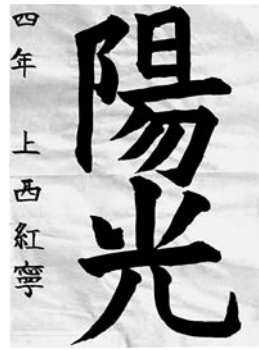 陽光
四年 上西紅寧